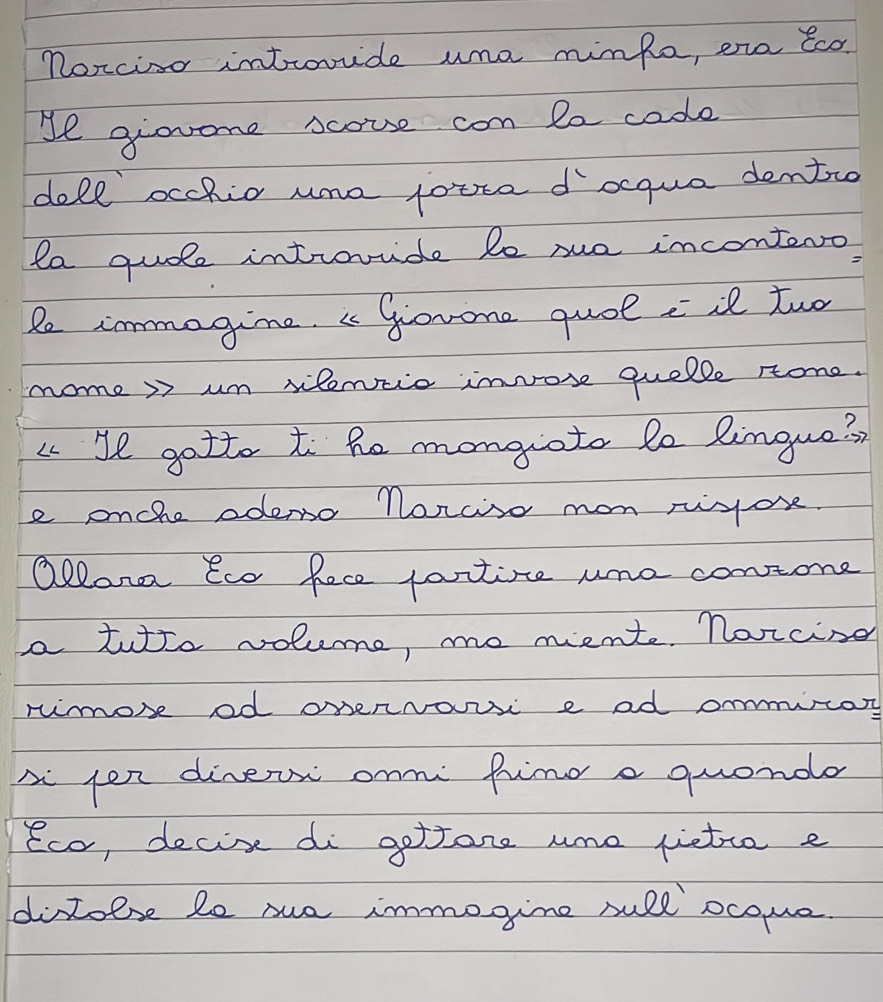 Narciso introvide una ninfa, era Eco.
Il giovane scorse con la coda
dell'occhio una pozza d'acqua dentro
la quale introvide la sua incantevo=
le immagine. << Giovane qual è il tuo
nome >> un silenzio invase quelle zone.
<< Il gatto ti ha mangiato la lingua? >>
e anche adesso Narciso non rispose.
Allora Eco fece partire una canzone
a tutto volume, ma niente. Narciso
rimase ad osservarsi e ad ammirar=
si per diversi anni fino a quando
Eco, decise di gettare una pietra e
distolse la sua immagine sull'acqua.